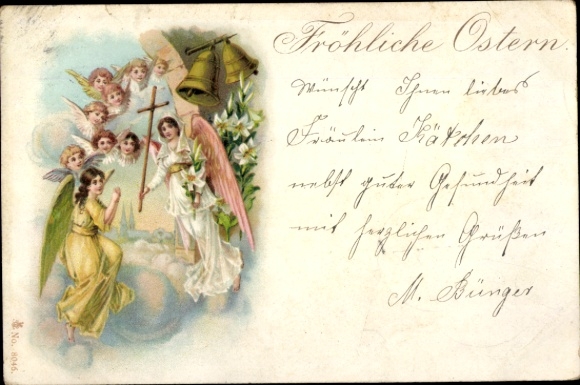 Fröhliche Ostern.
Wünscht Ihnen liebes
Fräulein Kätchen
nebst guter Gesundheit
mit herzlichen Grüßen
M. Bünger
No. 8046.